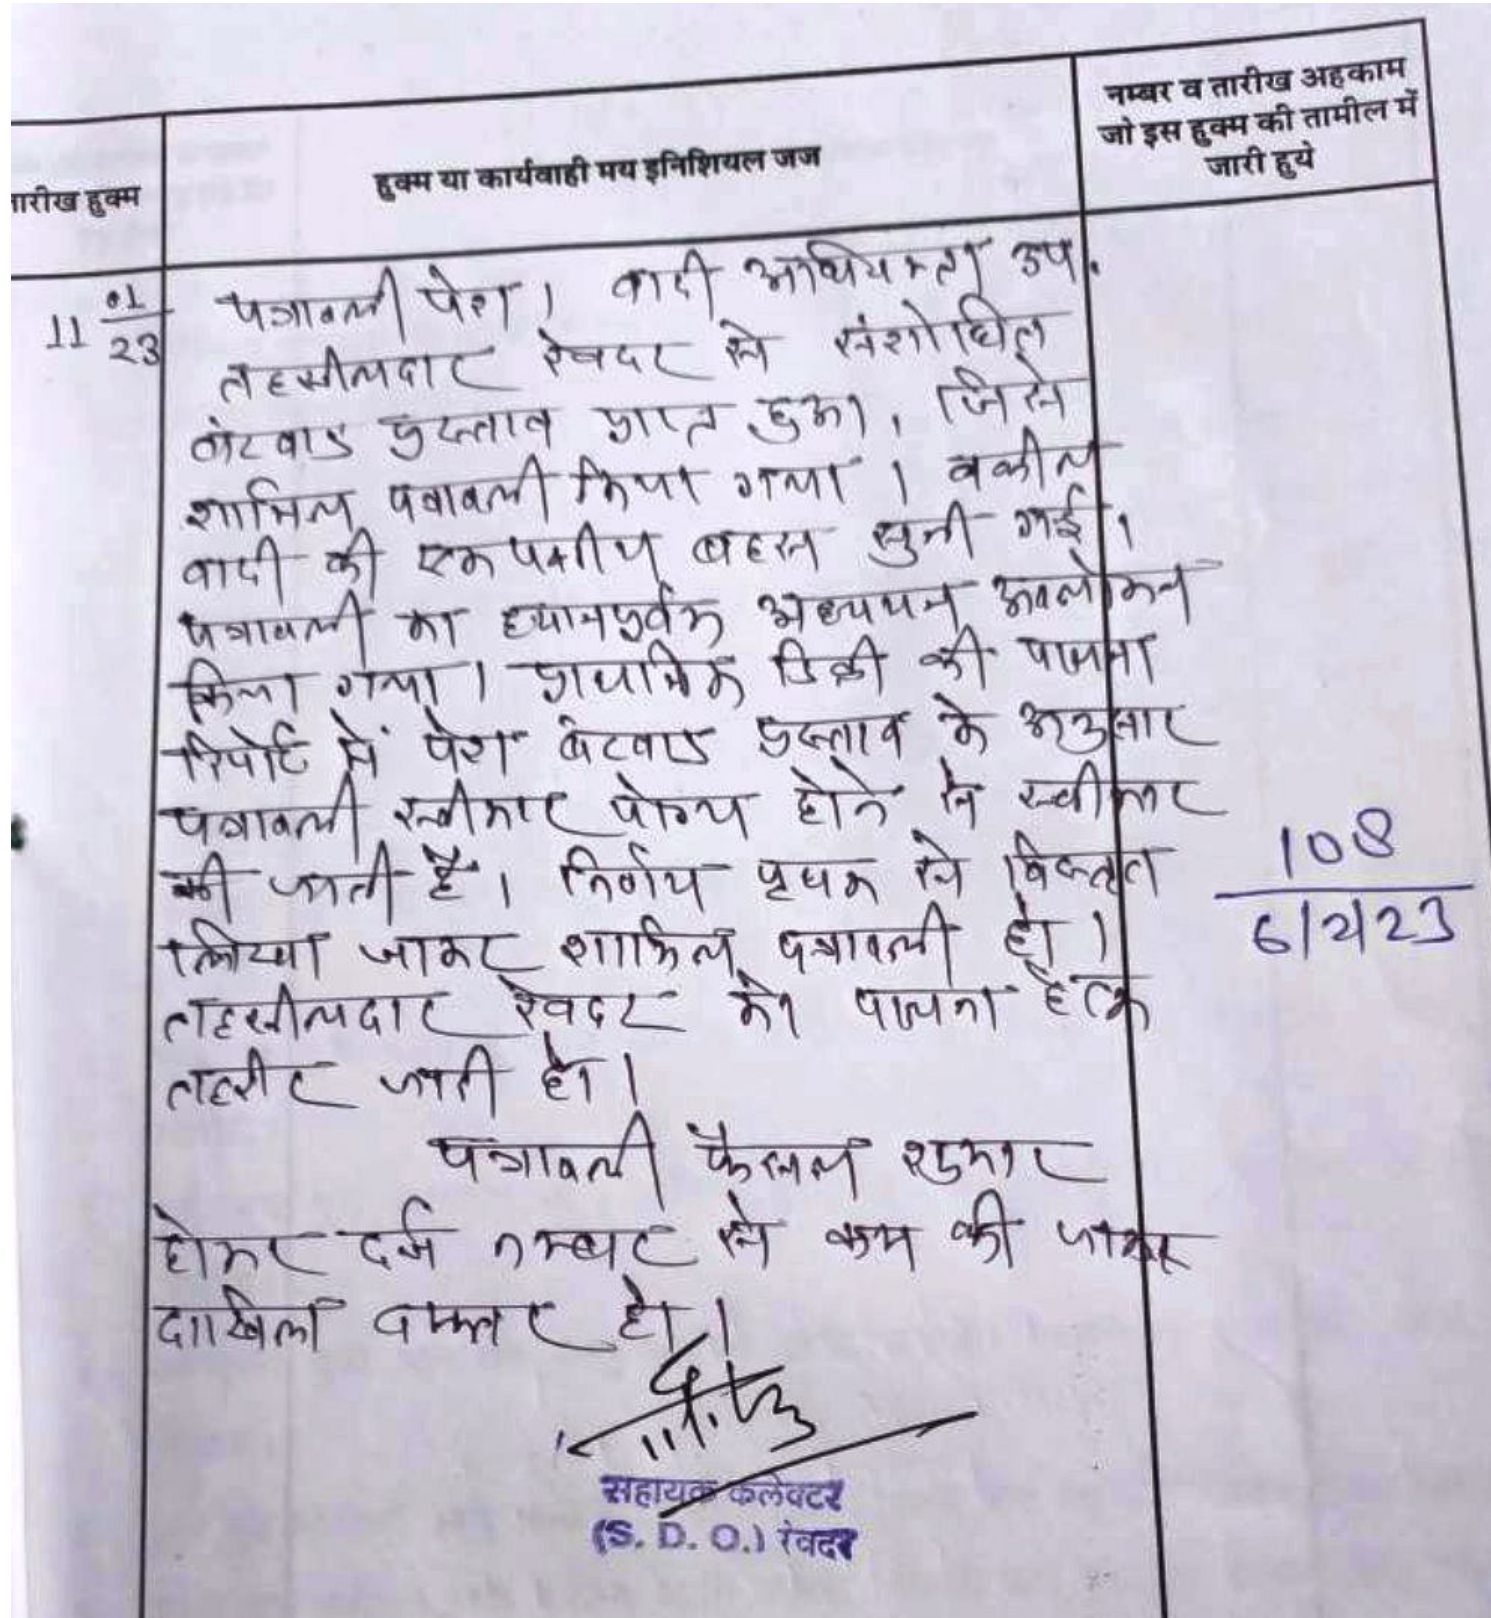 नम्बर व तारीख अहकाम
जो इस हुक्म की तामील में
जारी हुये
हुक्म या कार्यवाही मय इनिशियल जज
तारीख हुक्म
11 01/23
पत्रावली पेश। वादी अधिवक्ता उप.
तहसीलदार रेवदर से संशोधित
बंटवाड प्रस्ताव प्राप्त हुआ, जिसे
शामिल पत्रावली किया गया। वकील
वादी की एकपक्षीय बहस सुनी गई।
पत्रावली का ध्यानपूर्वक अध्ययन अवलोकन
किया गया। प्राथमिक डिक्री की पालना
रिपोर्ट में पेश बंटवाड प्रस्ताव के अनुसार
पत्रावली स्वीकार योग्य होने से स्वीकार
की जाती है। निर्णय पृथक से विस्तृत
लिखा जाकर शामिल पत्रावली हो।
तहसीलदार रेवदर को पालना हेतु
तहरीर जारी हो।
पत्रावली फैसल शुमार
होकर दर्ज नम्बर से कम की जाकर
दाखिल दफ्तर हो।
108
6/2/23
सहायक कलेक्टर
(S. D. O.) रेवदर